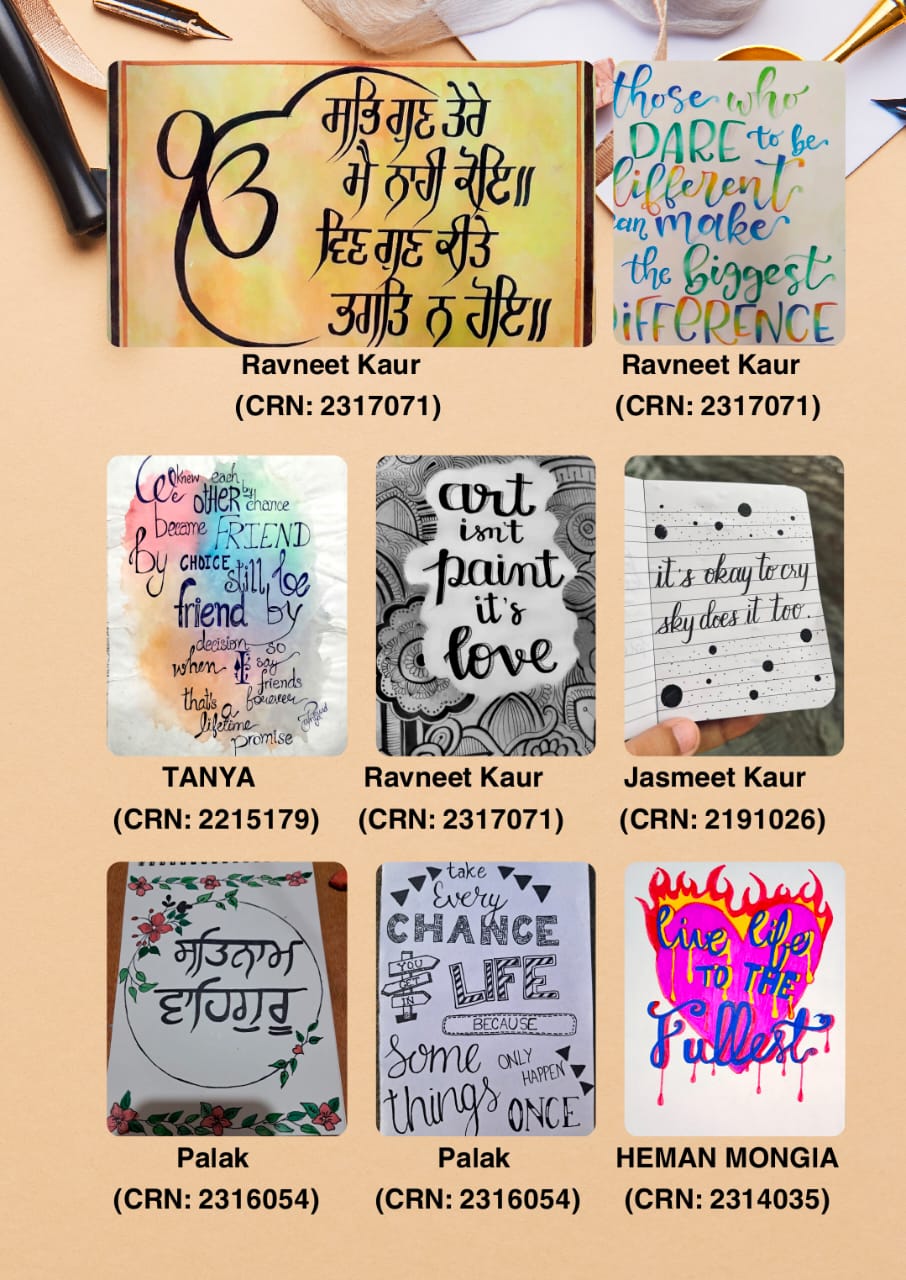 ਸਭਿ ਗੁਣ ਤੇਰੇ
ਮੈ ਨਾਹੀ ਕੋਇ॥
ਵਿਣ ਗੁਣ ਕੀਤੇ
ਭਗਤਿ ਨ ਹੋਇ॥
Ravneet Kaur
(CRN: 2317071)
those who
DARE to be
different
can make
the biggest
DIFFERENCE
Ravneet Kaur
(CRN: 2317071)
We knew each
other by chance
became FRIEND
By CHOICE still be
friend by
decision so
when I say
friends
forever
that's a
lifetime
promise
TANYA
(CRN: 2215179)
art
isn't
paint
it's
love
Ravneet Kaur
(CRN: 2317071)
it's okay to cry
sky does it too.
Jasmeet Kaur
(CRN: 2191026)
ਸਤਿਨਾਮ
ਵਾਹਿਗੁਰੂ
Palak
(CRN: 2316054)
take
Every
CHANCE
YOU
GET
IN
LIFE
BECAUSE
Some
things
ONLY
HAPPEN
ONCE
Palak
(CRN: 2316054)
live life
TO THE
Fullest
HEMAN MONGIA
(CRN: 2314035)